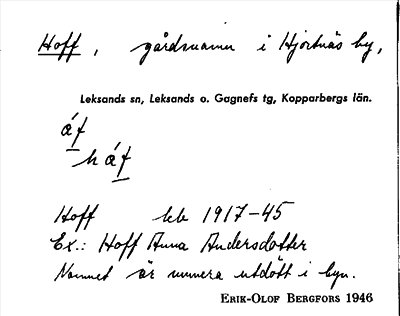 Hoff, gårdsnamn i Hjortnäs by,
Leksands sn, Leksands o. Gagnefs tg, Kopparbergs län.
áf
háf
Hoff kb 1917-45
Ex.: Hoff Anna Andersdotter
Namnet är numera utdött i byn.
Erik-Olof Bergfors 1946